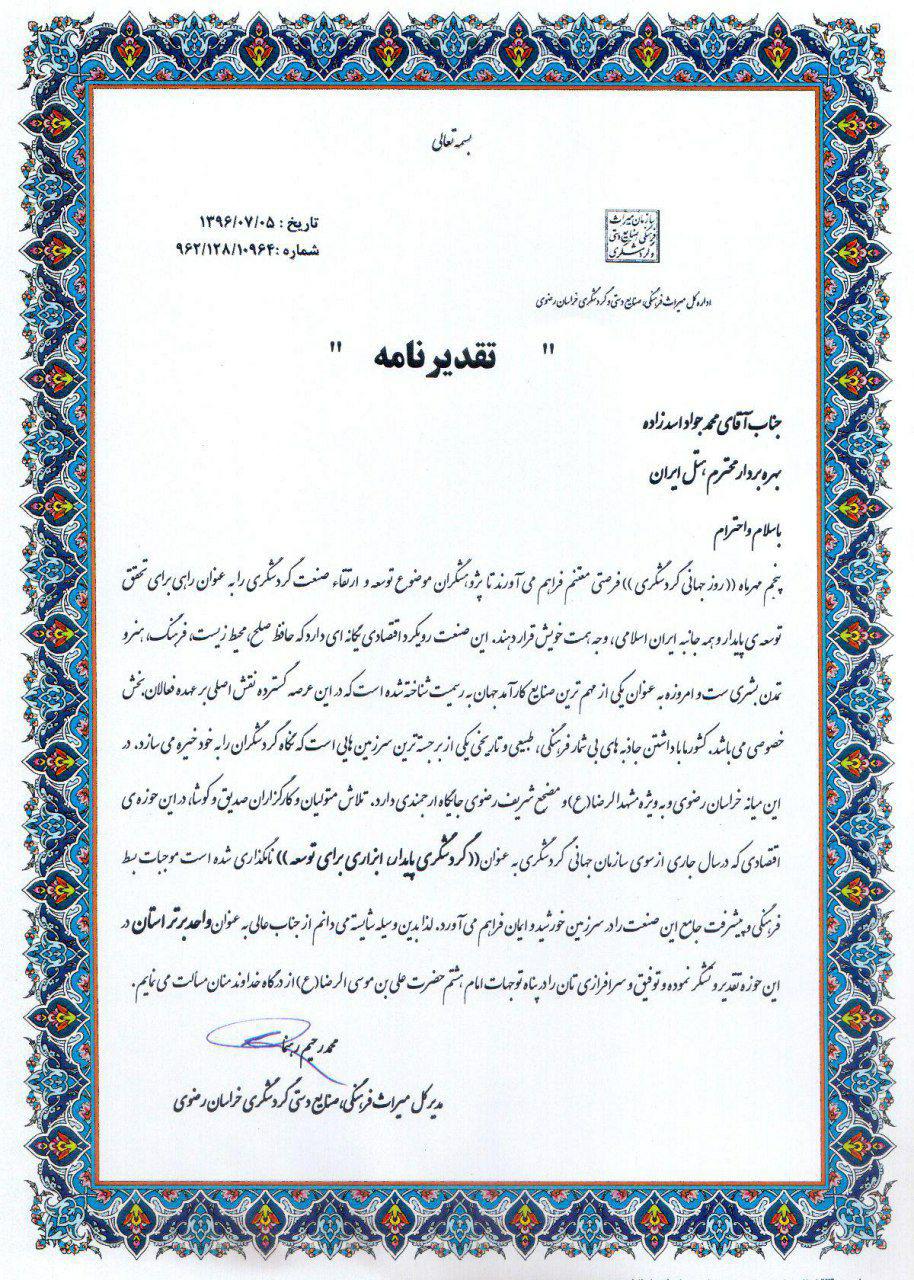 بسمه تعالی
تاریخ : ۱۳۹۶/۰۷/۰۵
شماره :۹۶۲/۱۲۸/۱۰۹۶۴
سازمان میراث
فرهنگی صنایع دستی
و گردشگری
اداره کل میراث فرهنگی، صنایع دستی و گردشگری خراسان رضوی
" تقدیر نامه "
جناب آقای محمد جواد اسدزاده
بهره بردار محترم هتل ایران
با سلام و احترام
پنجم مهرماه ((روز جهانی گردشگری)) فرصتی مغتنم فراهم می آورند تا پژوهشگران موضوع توسعه و ارتقاء صنعت گردشگری را به عنوان راهی برای تحقق
توسعه ی پایدار و همه جانبه ایران اسلامی، وجهه همت خویش قرار دهند. این صنعت رویکرد اقتصادی یگانه ای دارد که حافظ صلح، محیط زیست، فرهنگ، هنر و
تمدن بشری ست و امروزه به عنوان یکی از مهم ترین صنایع کارآمد جهان به رسمیت شناخته شده است که در این عرصه گسترده نقش اصلی بر عهده فعالان بخش
خصوصی می باشد. کشور ما با داشتن جاذبه های بی شمار فرهنگی، طبیعی و تاریخی یکی از برجسته ترین سرزمین هایی است که نگاه گردشگران را به خود خیره می سازد. در
این میانه خراسان رضوی و به ویژه مشهدالرضا(ع) و مضجع شریف رضوی جایگاه ارجمندی دارد. تلاش متولیان و کارگزاران صدیق و کوشا، در این حوزه ی
اقتصادی که در سال جاری از سوی سازمان جهانی گردشگری به عنوان ((گردشگری پایدار، ابزاری برای توسعه)) نامگذاری شده است موجبات بسط
فرهنگی و پیشرفت جامع این صنعت را در سرزمین خورشید و ایمان فراهم می آورد. لذا بدین وسیله شایسته می دانم از جناب عالی به عنوان واحد برتر استان در
این حوزه تقدیر و تشکر نموده و توفیق و سرافرازی تان را در پناه توجهات امام هشتم حضرت علی بن موسی الرضا(ع) از درگاه خداوند منان مسألت می نمایم.
محمد رحیم رهنما
مدیر کل میراث فرهنگی، صنایع دستی گردشگری خراسان رضوی